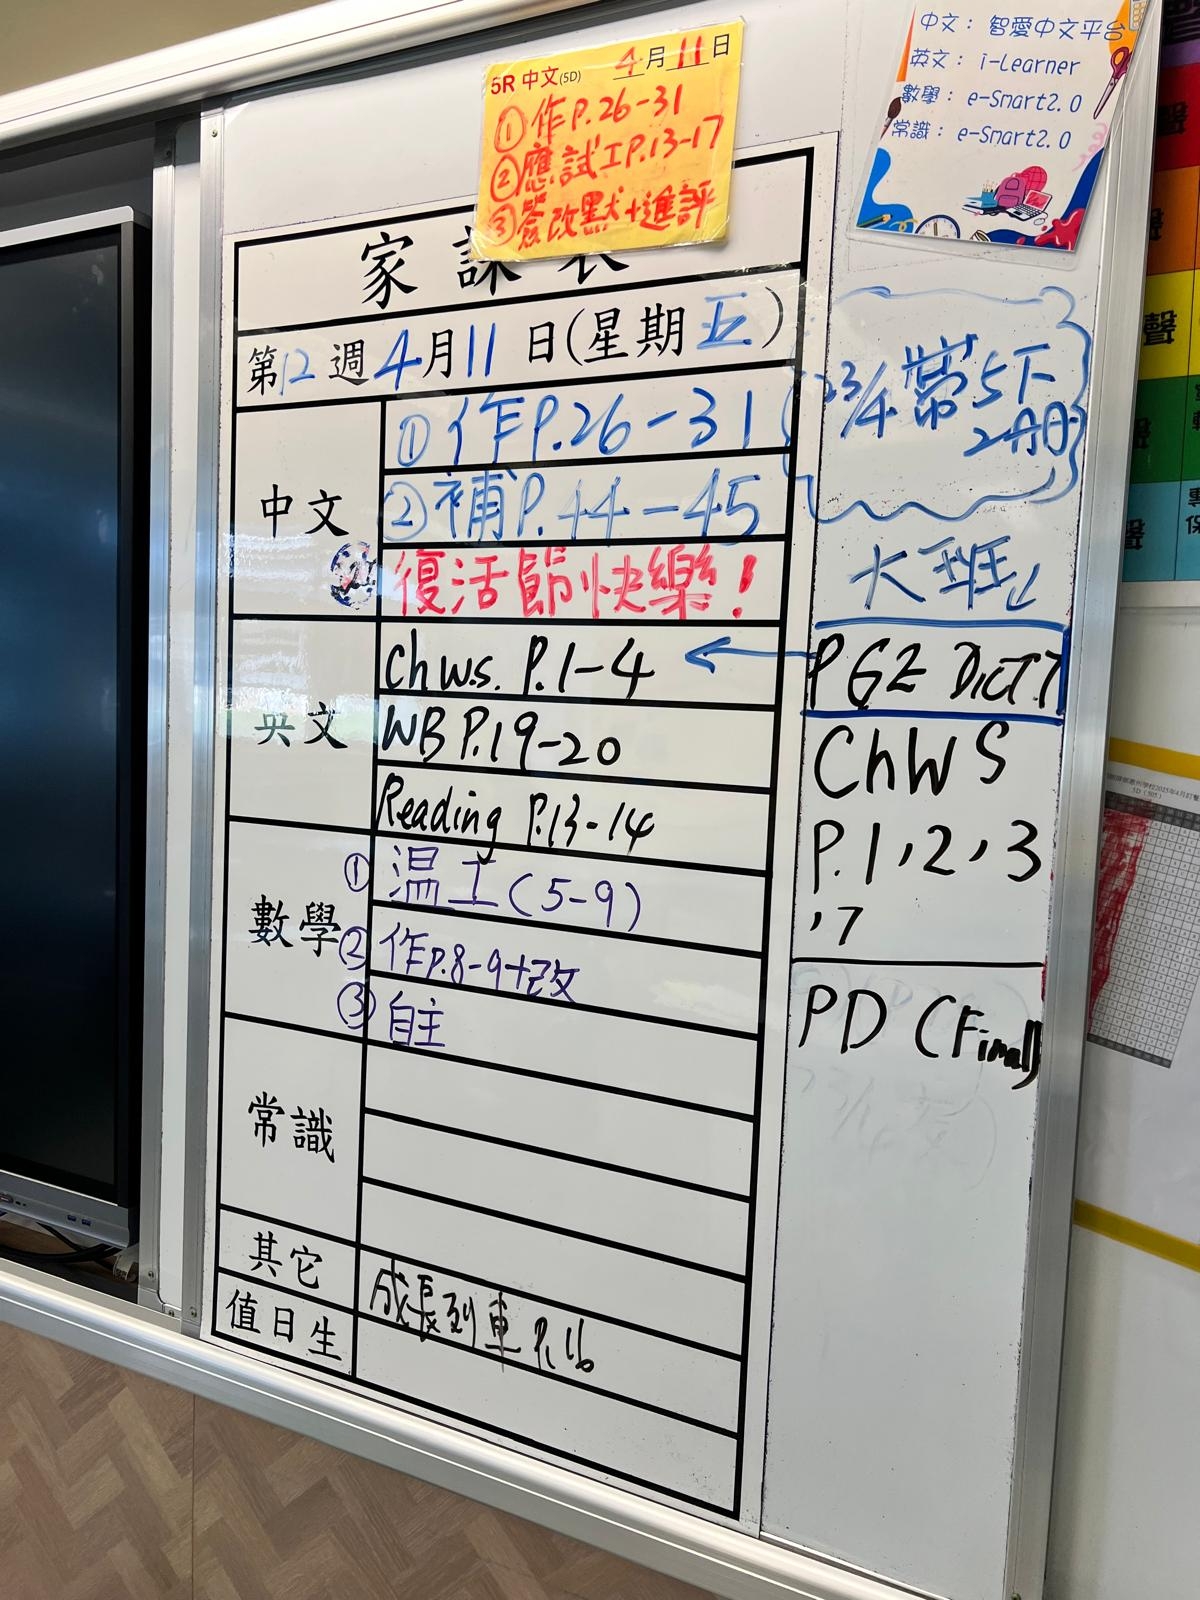 5R 中文(5D) 4月11日
①作P.26-31
②應試工P.13-17
③簽改默+進評
中文：智愛中文平台
英文：i-Learner
數學：e-Smart2.0
常識：e-Smart2.0
家課表
第12週4月11日(星期五)
中文
①作P.26-31
②補P.44-45
復活節快樂！
英文
Ch W.S. P.1-4
WB P.19-20
Reading P.13-14
數學
①溫工(5-9)
②作P.8-9+改
③自主
常識
其它
成長列車 P.16
值日生
23/4 常5下
2冊
大班↙
PGE DICT7
ChWS
P.1,2,3
,7
PD (Final)